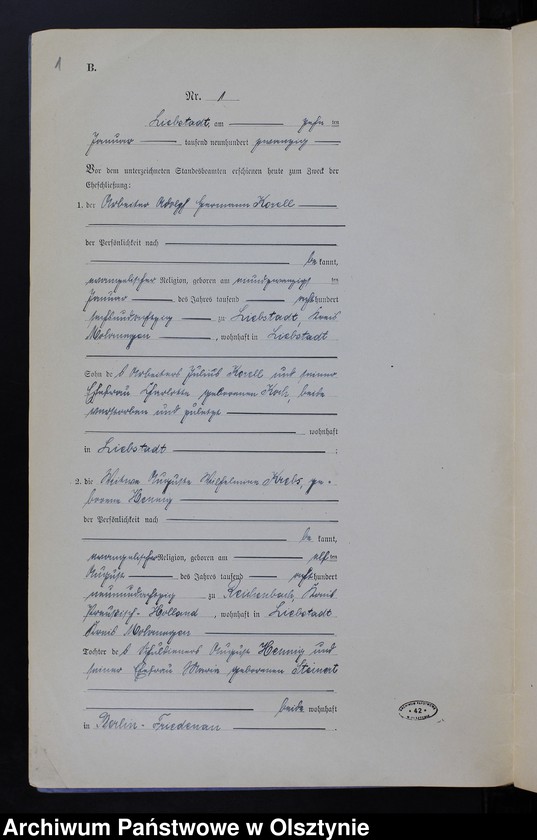 1
B.
Nr. 1
Liebstadt, am zehnten
Januar tausend neunhundert zwanzig
Vor dem unterzeichneten Standesbeamten erschienen heute zum Zweck der
Eheschließung:
1. der Arbeiter Adolf Hermann Korell
der Persönlichkeit nach
be kannt,
evangelischer Religion, geboren am ten
Januar des Jahres tausend achthundert
sechsundachtzig zu Liebstadt, Kreis
Mohrungen, wohnhaft in Liebstadt
Sohn des Arbeiters Julius Korell und seiner
Ehefrau Charlotte geborenen Koch, beide
verstorben und zuletzt
wohnhaft
in Liebstadt ;
2. die Witwe Auguste Wilhelmine Krebs, ge-
borene Hennig
der Persönlichkeit nach
be kannt,
evangelischer Religion, geboren am elften
August des Jahres tausend achthundert
neunundachtzig zu Reichenbach, Kreis
Preußisch-Holland, wohnhaft in Liebstadt
Kreis Mohrungen
Tochter des Schuldieners August Hennig und
seiner Ehefrau Maria geborenen Steinert
beide wohnhaft
in Berlin-Friedenau .
42
Archiwum Państwowe w Olsztynie